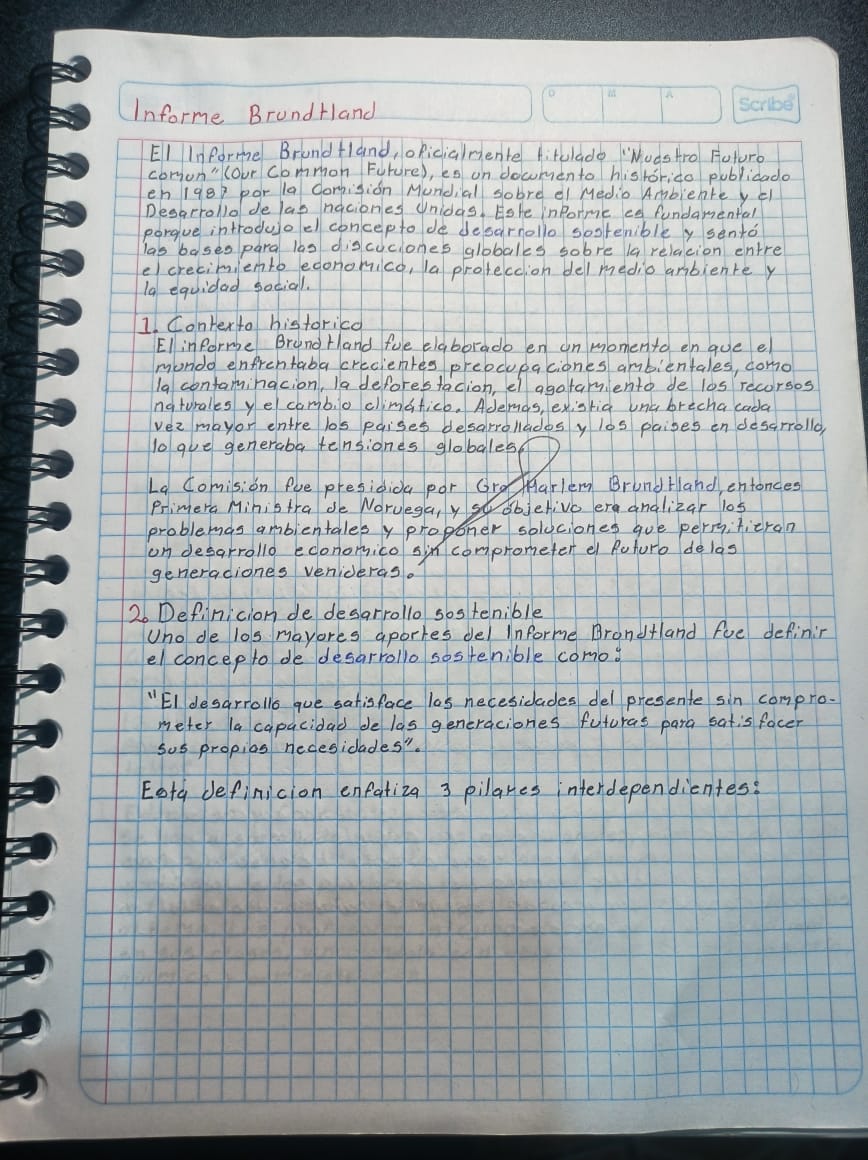 Informe Brundtland
D M A
Scribe
El Informe Brundtland, oficialmente titulado "Nuestro Futuro
comun" (Our Common Future), es un documento histórico publicado
en 1987 por la Comisión Mundial sobre el Medio Ambiente y el
Desarrollo de las naciones Unidas. Este informe es fundamental
porque introdujo el concepto de desarrollo sostenible y sentó
las bases para las discuciones globales sobre la relacion entre
el crecimiento economico, la proteccion del medio ambiente y
la equidad social.
1. Contexto historico
El informe Brundtland fue elaborado en un momento en que el
mundo enfrentaba crecientes preocupaciones ambientales, como
la contaminacion, la deforestacion, el agotamiento de los recursos
naturales y el cambio climático. Ademas, existia una brecha cada
vez mayor entre los paises desarrollados y los paises en desarrollo,
lo que generaba tensiones globales.
La Comisión fue presidida por Gro Harlem Brundtland, entonces
Primera Ministra de Noruega, y su objetivo era analizar los
problemas ambientales y proponer soluciones que permitieran
un desarrollo economico sin comprometer el futuro de las
generaciones venideras.
2. Definicion de desarrollo sostenible
Uno de los mayores aportes del Informe Brondtland fue definir
el concepto de desarrollo sostenible como:
"El desarrollo que satisface las necesidades del presente sin compro-
meter la capacidad de las generaciones futuras para satisfacer
sus propias necesidades".
Esta definicion enfatiza 3 pilares interdependientes: